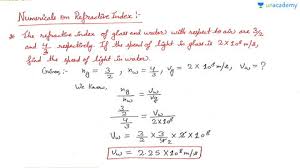 unacademy
Numericals on Refractive Index :-
The refractive index of glass and water with respect to air are 3/2
and 4/3 respectively. If the speed of light in glass is 2×10⁸ m/s,
find the speed of light in water.
Given :- ng = 3/2 , nw = 4/3 , vg = 2×10⁸ m/s, vw = ?
We know,
ng/nw = vw/vg
3/2 / 4/3 = vw / 2×10⁸
vw = 3/2 × 3/4 × 2 × 10⁸
vw = 2.25 × 10⁸ m/s